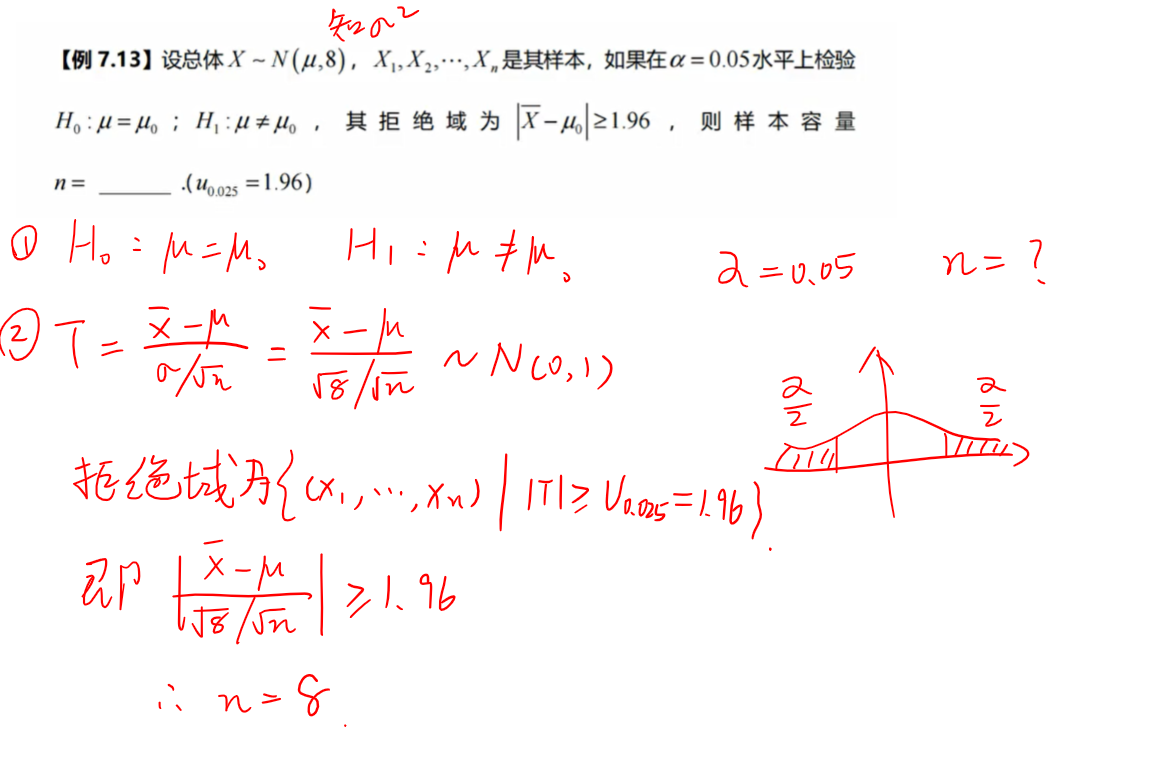 知σ²
【例 7.13】设总体 X ~ N(μ,8)，X₁,X₂,⋯,Xₙ是其样本，如果在α = 0.05水平上检验
H₀ : μ = μ₀ ；H₁ : μ ≠ μ₀ ，其拒绝域为 |X̅ − μ₀| ≥ 1.96 ，则样本容量
n = ______ .(u₀.₀₂₅ = 1.96)
① H₀ : μ = μ₀ H₁ : μ ≠ μ₀ α = 0.05 n = ?
② T = (x̅ − μ)/(σ/√n) = (x̅ − μ)/(√8/√n) ~ N(0,1)
α/2 α/2
拒绝域为{(x₁,⋯,xₙ) | |T| ≥ U₀.₀₂₅ = 1.96}.
即 |(x̅ − μ)/(√8/√n)| ≥ 1.96
∴ n = 8.